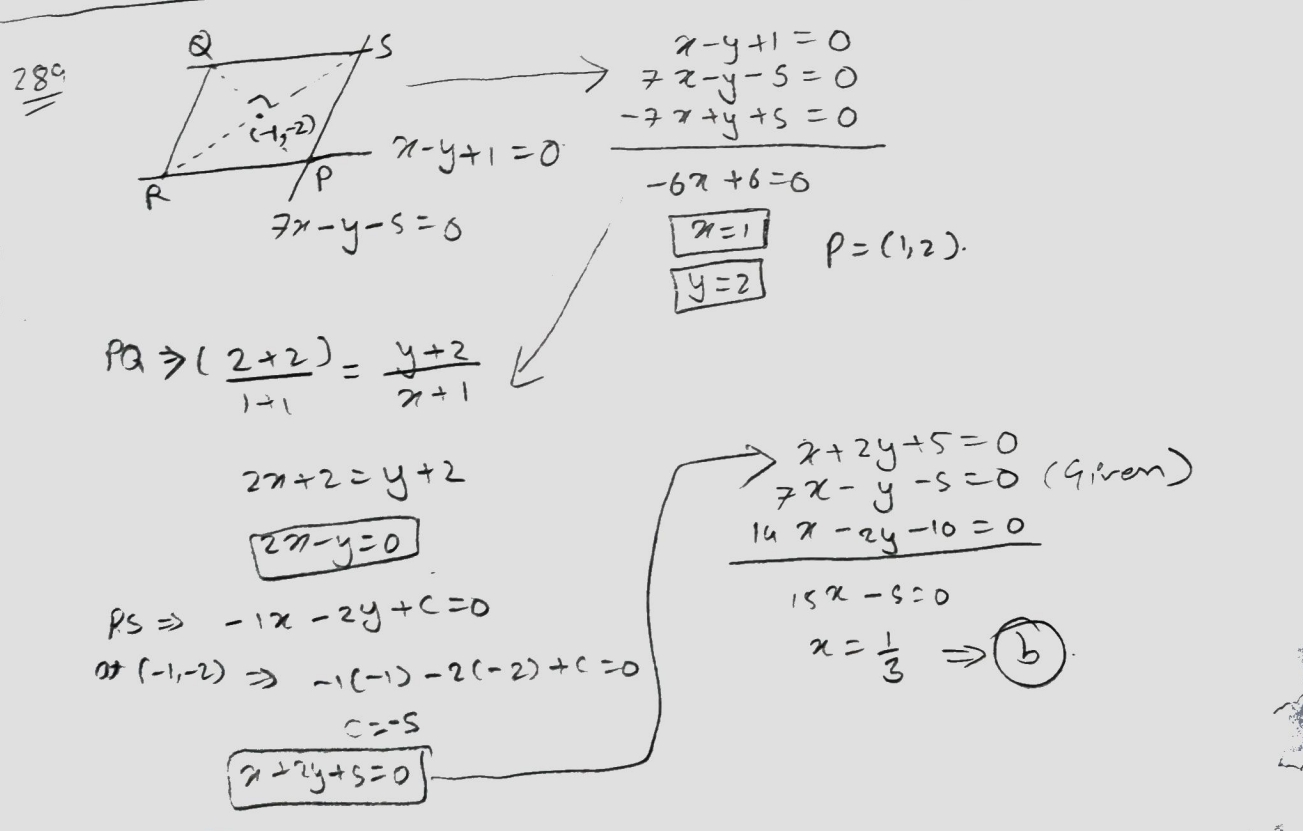 289
Q S
(-1,-2)
R P
x-y+1=0
7x-y-5=0
x-y+1=0
7x-y-5=0
-7x+y+5=0
-6x+6=0
x=1
y=2
P=(1,2).
PQ ⇒ (2+2)/(1+1) = (y+2)/(x+1)
2x+2=y+2
2x-y=0
RS ⇒ -1x-2y+c=0
at (-1,-2) ⇒ -1(-1)-2(-2)+c=0
c=-5
x+2y+5=0
x+2y+5=0
7x-y-5=0 (Given)
14x-2y-10=0
15x-5=0
x=1/3 ⇒ b.